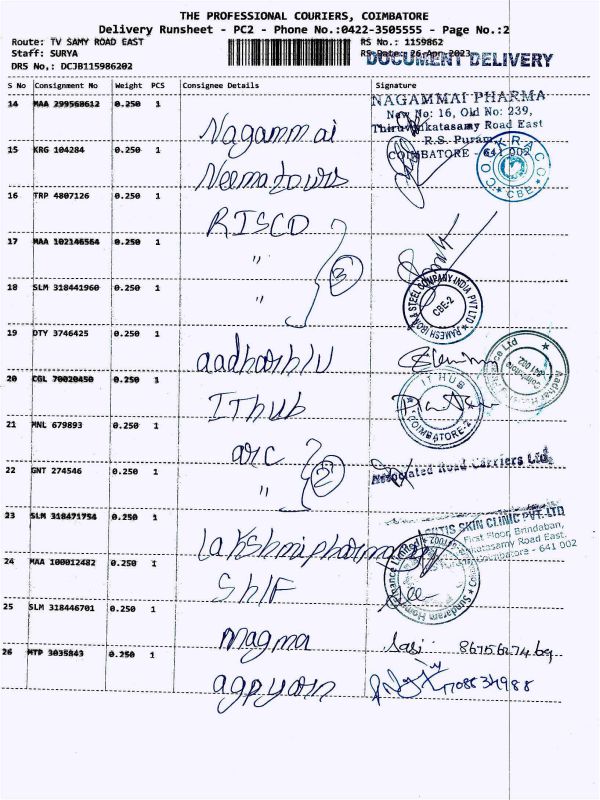 THE PROFESSIONAL COURIERS, COIMBATORE
Delivery Runsheet - PC2 - Phone No.:0422-3505555 - Page No.:2
Route: TV SAMY ROAD EAST
RS No.: 1159862
Staff: SURYA
RS Date: 26-Apr-2023
DOCUMENT DELIVERY
DRS No,: DCJB115986202
S No Consignment No Weight PCS Consignee Details Signature
14 MAA 299568612 0.250 1
NAGAMMAI PHARMA
New No: 16, Old No: 239,
Thiruvenkatasamy Road East
R.S. Puram
COIMBATORE - 641 002
Nagammai
15 KRG 104284 0.250 1
CBE
Neematowrs
16 TRP 4807126 0.250 1
RISCO
17 MAA 102146564 0.250 1
"
3
18 SLM 318441960 0.250 1
"
RAMESH IRON & STEEL COMPANY INDIA PVT LTD
CBE-2
19 DTY 3746425 0.250 1
aadharh/v
20 CGL 70020450 0.250 1
IThub
IT HUB
COIMBATORE-2
21 MNL 679893 0.250 1
arc
22 GNT 274546 0.250 1
"
2
Associated Road Carriers Ltd
23 SLM 318471754 0.250 1
SKIN CLINIC PVT. LTD
First Floor, Brindaban,
Road East,
Coimbatore - 641 002
Lakshmipharma
24 MAA 100012482 0.250 1
Sundaram Home Finance Limited
Sh/F
25 SLM 318446701 0.250 1
magma
Sasi
26 MTP 3035843 0.250 1
agpyarn